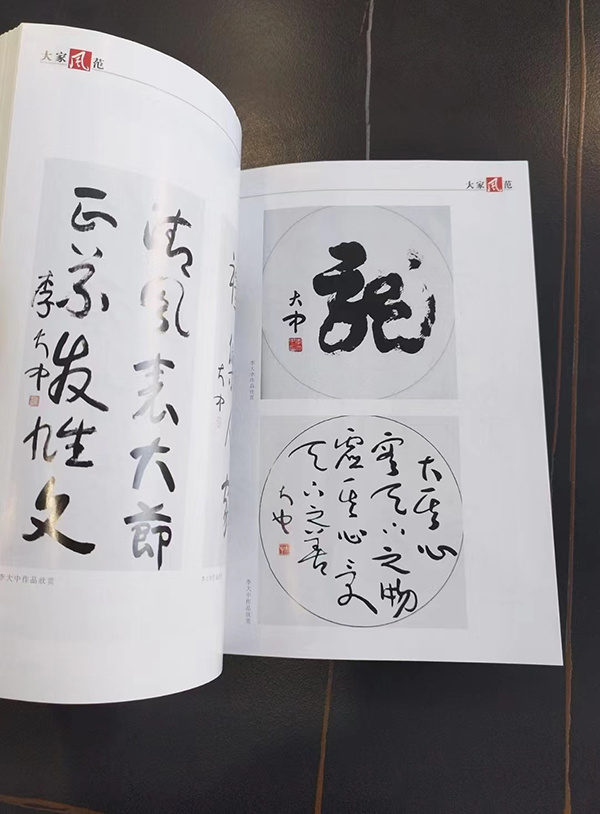 大家风范
清風表大節
正氣发雄文
李大中
大中
李大中作品欣赏
大家风范
龍
大中
李大中作品欣赏
大其心
容天下之物
虚其心受
天下之善
大中
李大中作品欣赏